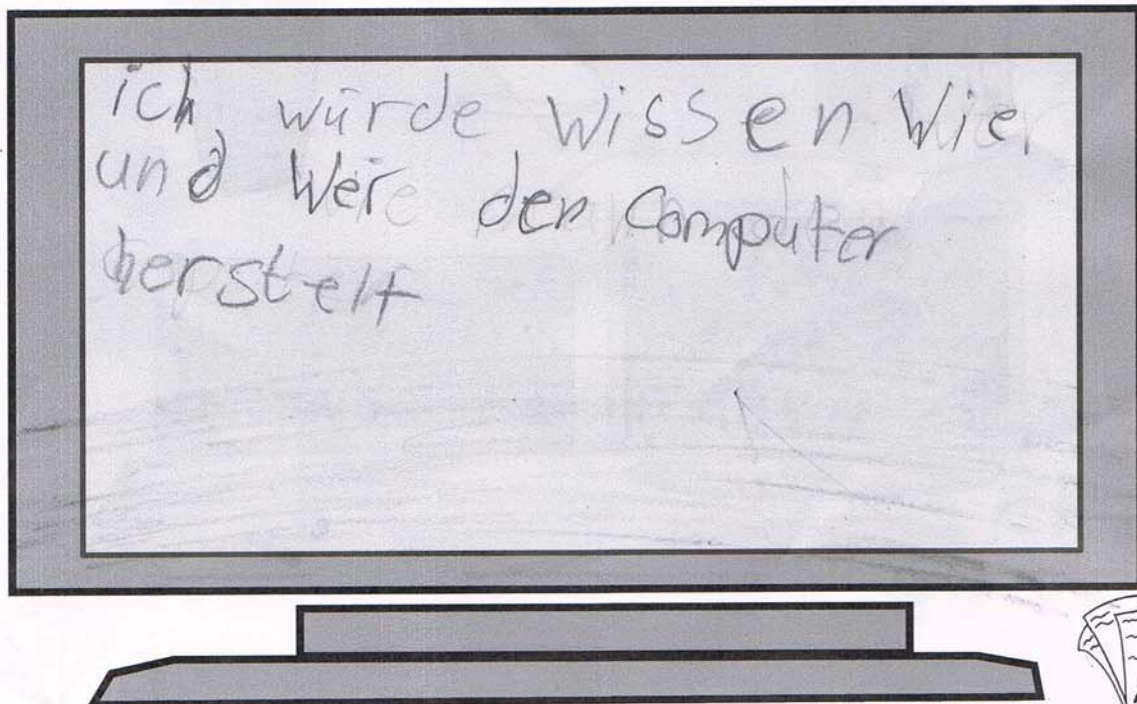 ich würde wissen Wie
und Wer den Computer
herstelt